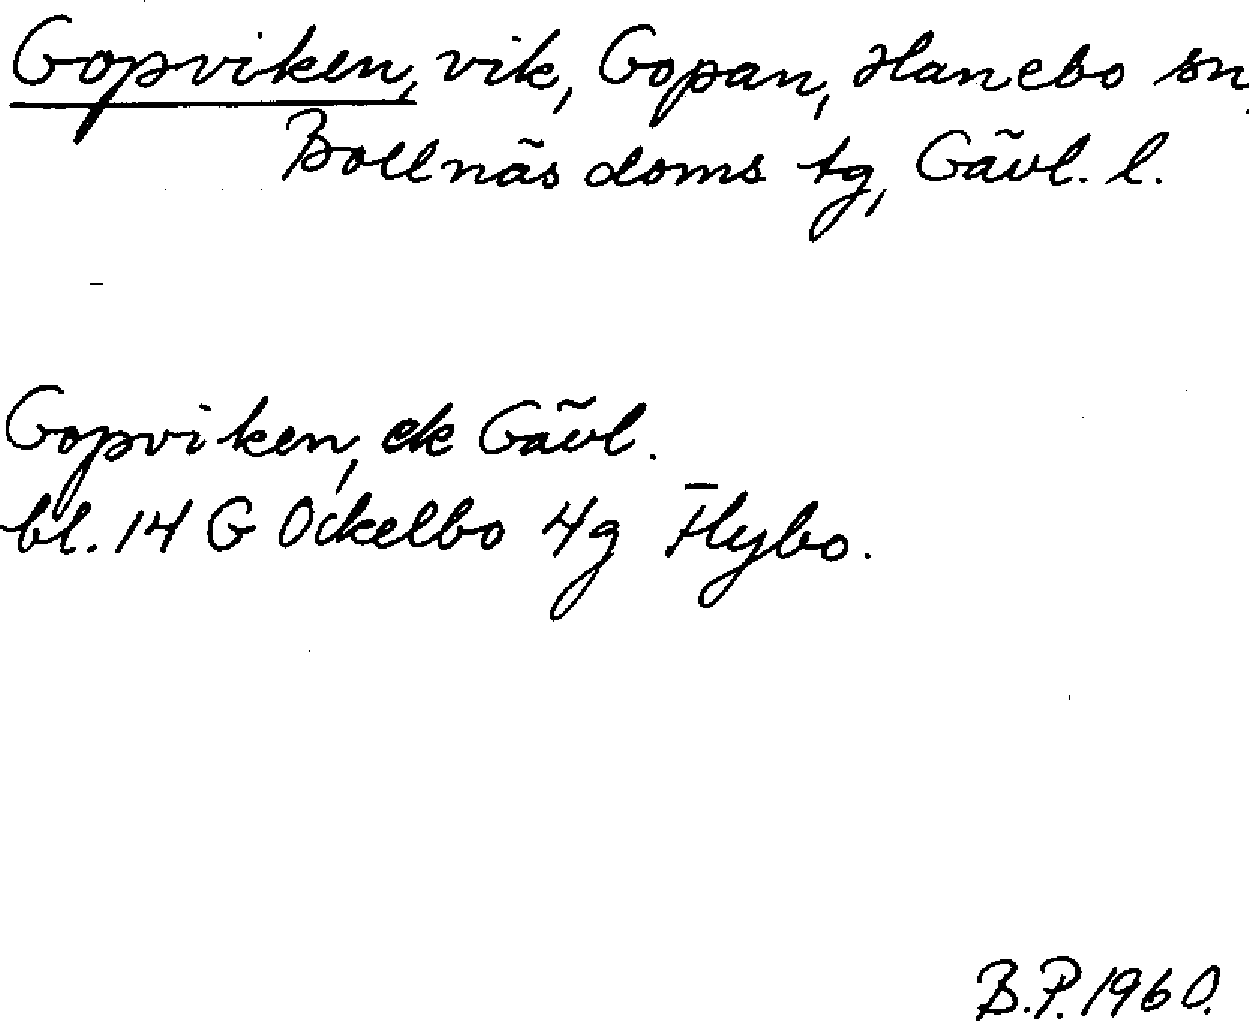 Gopviken, vik, Gopan, Hanebo sn,
Bollnäs doms tg, Gävl. l.
Gopviken, ek Gävl.
bl. 14 G Ockelbo 4g Flybo.
B.P. 1960.